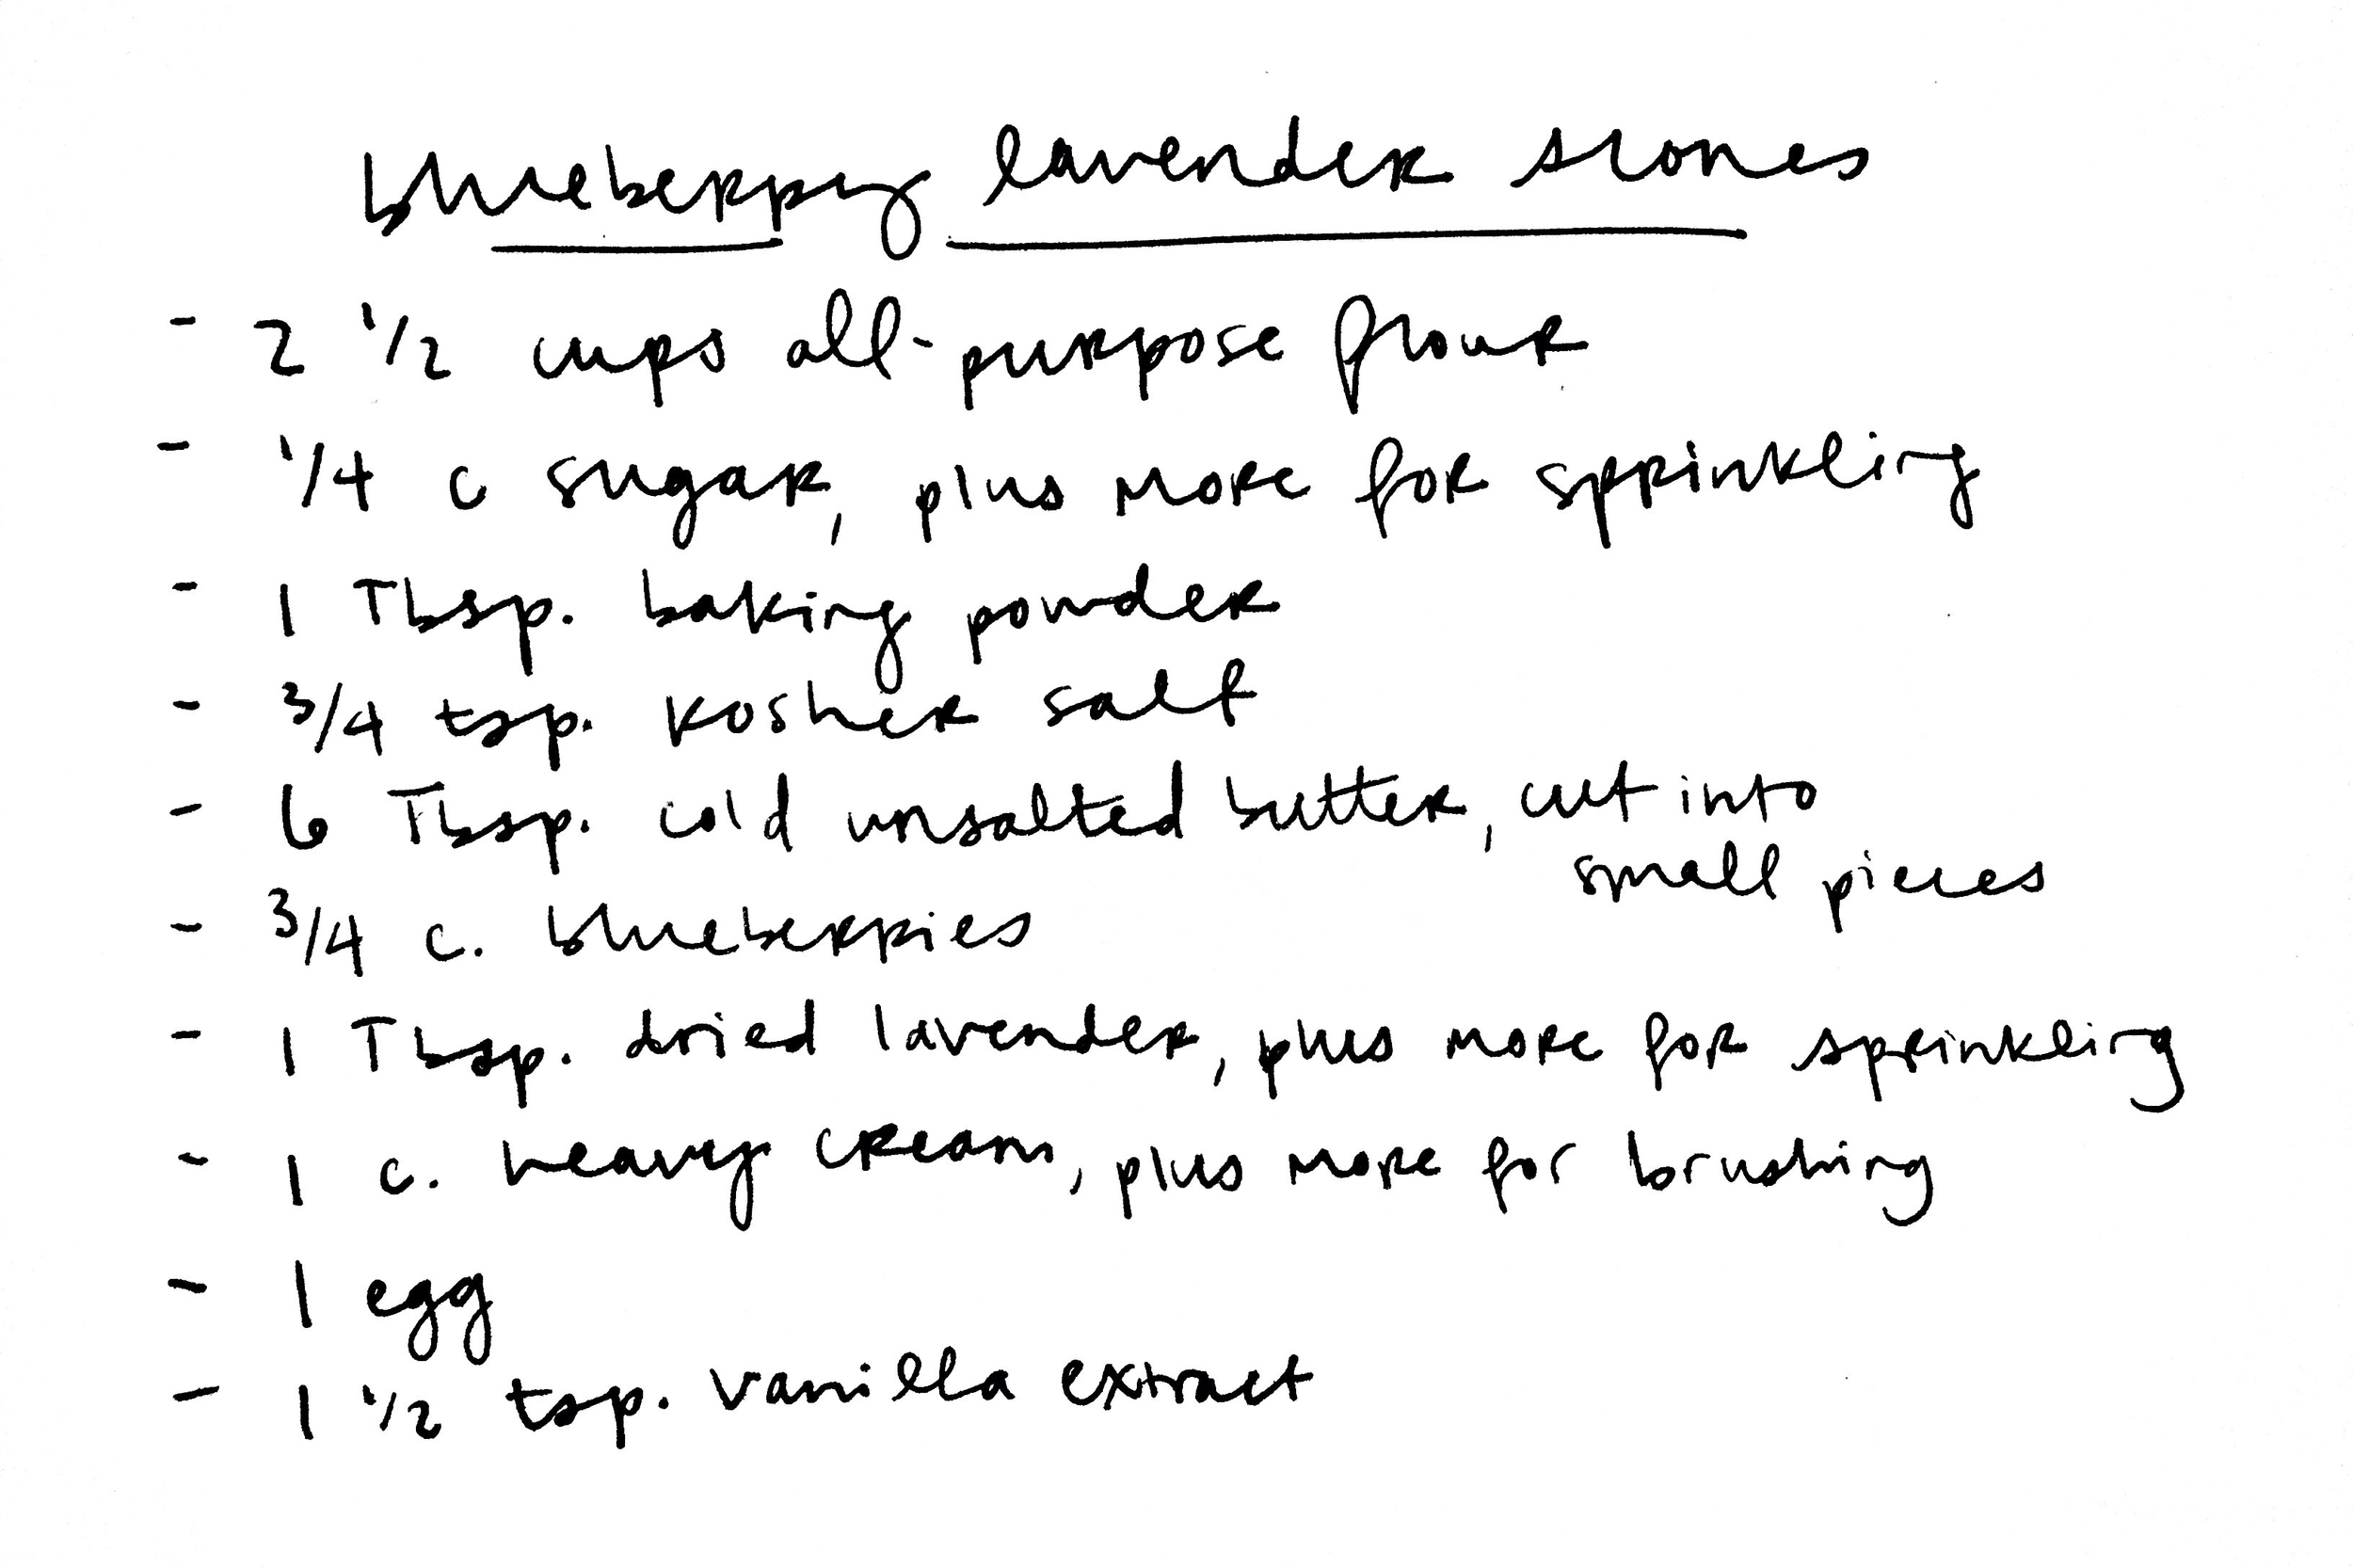 blueberry lavender scones
- 2 1/2 cups all-purpose flour
- 1/4 c sugar, plus more for sprinkling
- 1 Tbsp. baking powder
- 3/4 tsp. kosher salt
- 6 Tbsp. cold unsalted butter, cut into
small pieces
- 3/4 c. blueberries
- 1 Tbsp. dried lavender, plus more for sprinkling
- 1 c. heavy cream, plus more for brushing
- 1 egg
- 1 1/2 tsp. vanilla extract